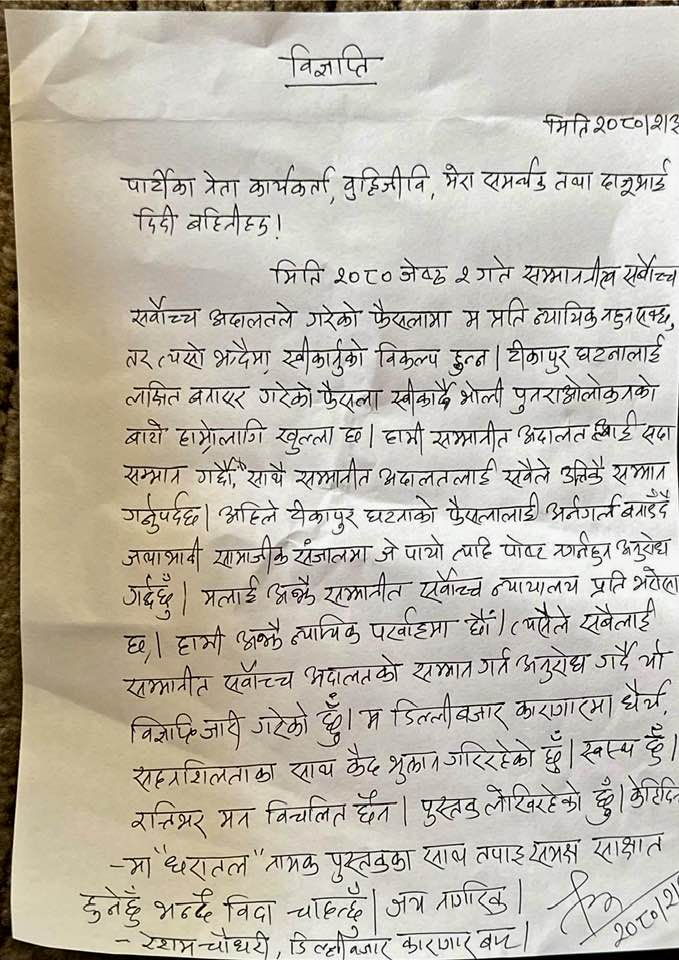 विज्ञप्ति
मिति २०८०।२।३
पार्टीका नेता कार्यकर्ता, वुद्धिजीवि, मेरा समर्थक तथा दाजुभाई
दिदी बहिनीहरु!
मिति २०८० जेष्ठ २ गते सम्मानीत सर्वोच्च
सर्वोच्च अदालतले गरेको फैसलामा म प्रति न्यायिक नहुन सक्छ,
तर त्यसो भन्दैमा स्वीकार्नुको विकल्प हुन्न। टीकापुर घटनालाई
लक्षित बनाएर गरेको फैसला स्वीकार्दै भोली पुनराओलोकनको
बाटो हाम्रोलागि खुल्ला छ। हामी सम्मानीत अदालत लाई सदा
सम्मान गर्दछौं, साथै सम्मानीत अदालतलाई सवैले उत्तिकै सम्मान
गर्नुपर्दछ। अहिले टीकापुर घटनाको फैसलालाई अर्नगल बनाउँदै
जथाभावी सामाजीक संजालमा जे पायो त्यहि पोष्ट नगर्नहुन अनुरोध
गर्दछुँ। मलाई अझै सम्मानीत सर्वोच्च न्यायालय प्रति भरोसा
छ, हामी अझै न्यायिक पर्खाईमा छौं। त्यसैले सबैलाई
सम्मानीत सर्वोच्च अदालतको सम्मान गर्न अनुरोध गर्दै यो
विज्ञप्ति जारी गरेको छुँ। म डिल्लीबजार कारागारमा धैर्य,
सहनशिलताका साथ कैद भुक्तान गरिरहेको छुँ। स्वस्थ छुँ।
रत्तिभर मन विचलित छैन। पुस्तक लेखिरहेको छुँ। केहिदिन
-मा "धरातल" नामक पुस्तकका साथ तपाइ समक्ष साक्षात
हुनेछुँ भन्दै विदा चाहन्छुँ। जय नागरिक।
- रेशम चौधरी, डिल्लीबजार कारागार बाट।
२०८०।२।